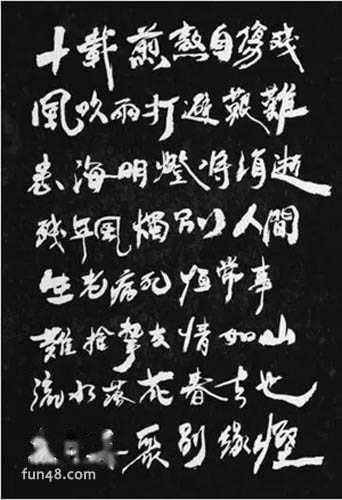 十載煎熬自傷殘
風吹雨打避艱難
患海明燈將消逝
殘年風燭別人間
生老病死恒常事
難捨摯友情如山
流水落花春去也
聚别緣慳
fun48.com